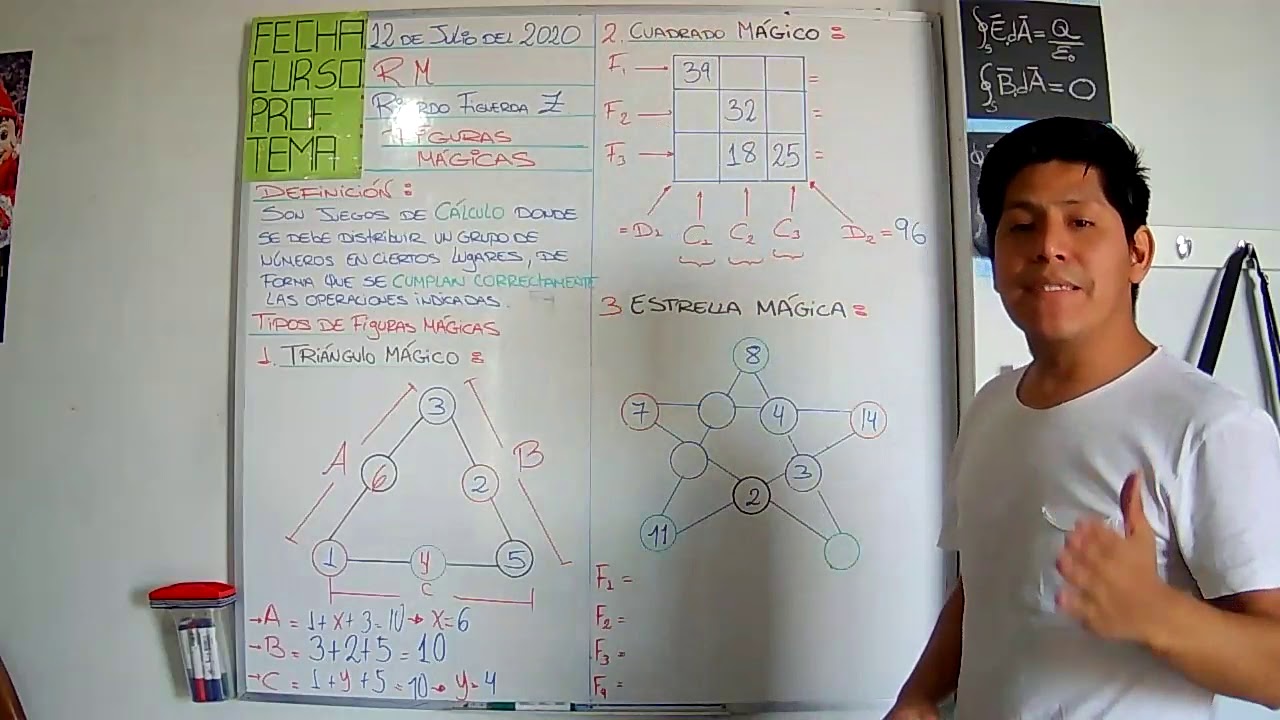 FECHA 12 DE JULIO DEL 2020
CURSO R M
PROF. FIGUEROA Z.
TEMA FIGURAS
MÁGICAS
DEFINICIÓN :
SON JUEGOS DE CÁLCULO DONDE
SE DEBE DISTRIBUIR UN GRUPO DE
NÚMEROS EN CIERTOS LUGARES, DE
FORMA QUE SE CUMPLAN CORRECTAMENTE
LAS OPERACIONES INDICADAS.
TIPOS DE FIGURAS MÁGICAS
1. TRIÁNGULO MÁGICO :
3
A 6 2 B
1 4 5
C
→A = 1+x+3=10→ x=6
→B = 3+2+5=10
→C = 1+y+5=10→ y=4
2. CUADRADO MÁGICO :
F1 → 39 =
F2 → 32 =
F3 → 18 25 =
=D1 C1 C2 C3 D2=96
3 ESTRELLA MÁGICA :
8
7 4 14
3
2
11
F1 =
F2 =
F3 =
F4 =
∮S E.dA = Q/ε0
∮S B.dA = 0